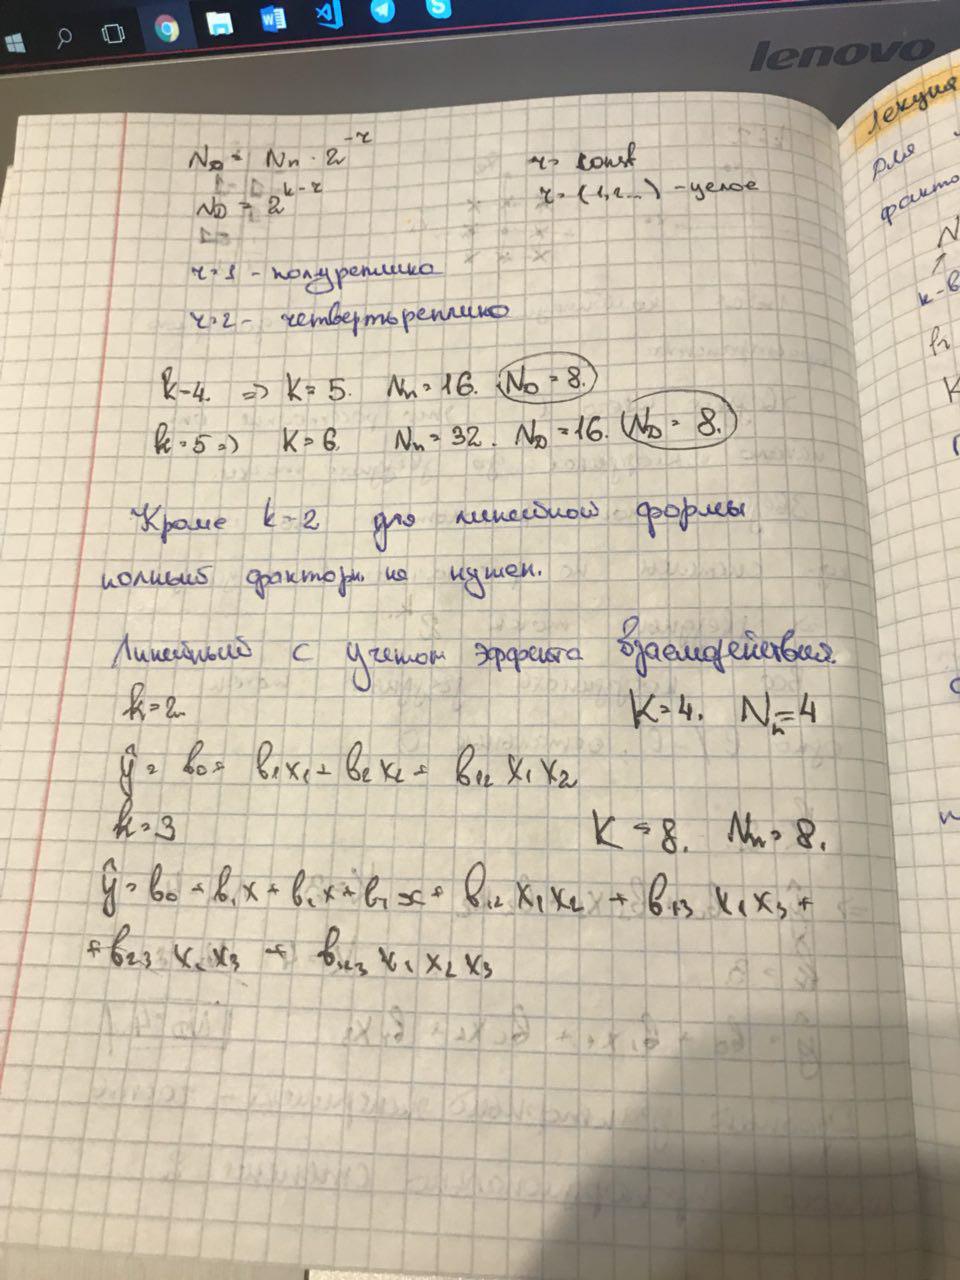 lenovo
N_D = N_п · 2^{-r}    r = const
N_D = 2^{k-r}    r = (1, 2...) - целое
r = 1 - полуреплика
r = 2 - четвертьреплика
k-4. => K = 5. N_п = 16. N_D = 8.
k = 5 => K = 6. N_п = 32. N_D = 16. N_D = 8.
Кроме k-2 для линейной формы
полный факторн. не нужен.
Линейный с учетом эффекта взаимодействия.
k = 2    K = 4. N_п = 4
ŷ = b₀ + b₁x₁ + b₂x₂ + b₁₂ x₁ x₂
k = 3    K = 8. N_п = 8.
ŷ = b₀ + b₁x + b₂x + b₁x + b₁₂ x₁ x₂ + b₁₃ x₁ x₃ +
+ b₂₃ x₂ x₃ + b₁₂₃ x₁ x₂ x₃
Лекция
для
факто
N
k-в
K